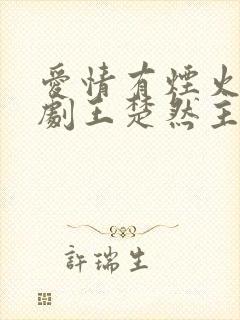 愛情有煙火
劇王楚然主
許瑞生